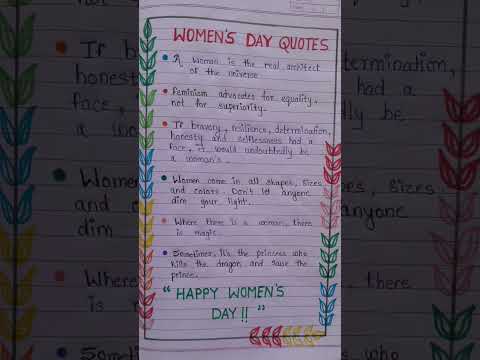 WOMEN'S DAY QUOTES
A woman is the real architect
of the universe.
Feminism advocates for equality,
not for superiority.
If bravery, resilience, determination,
honesty and selflessness had a
face, it would undoubtedly be
a woman's.
Women come in all shapes, sizes
and colors. Don't let anyone
dim your light.
Where there is a woman, there
is magic.
Sometimes, it's the princess who
kills the dragon and saves the
prince.
"HAPPY WOMEN'S
DAY!!"